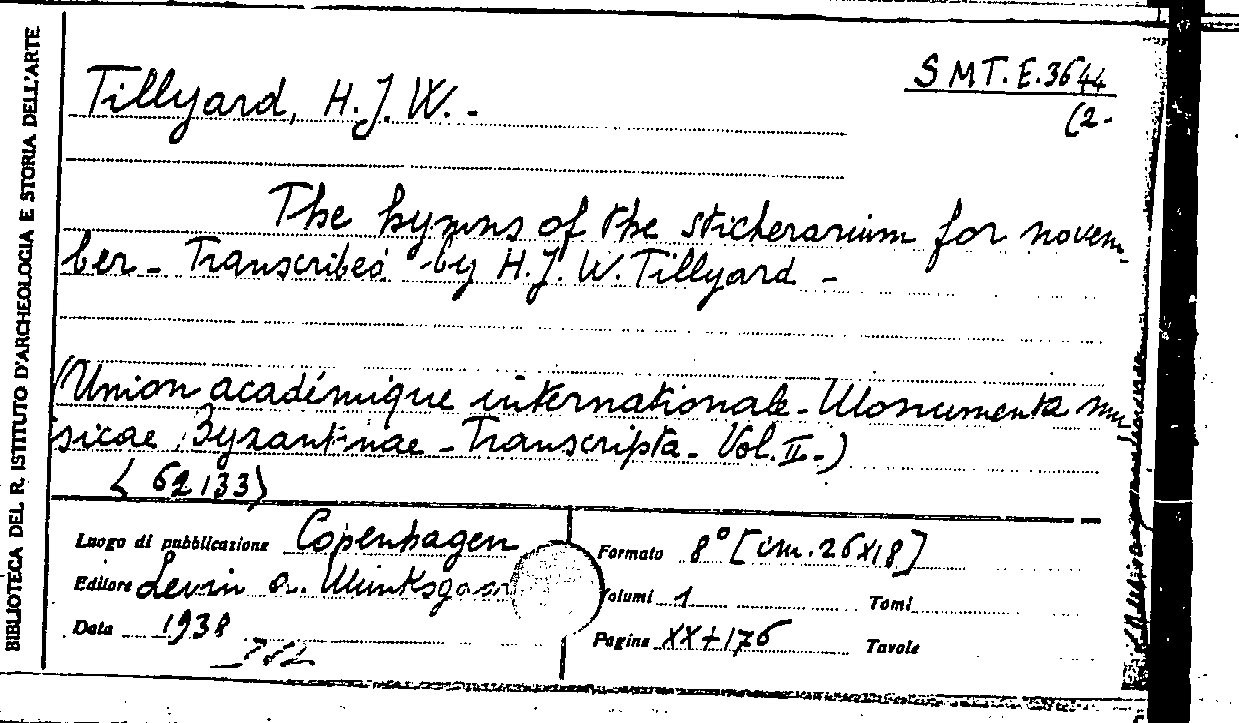 BIBLIOTECA DEL R. ISTITUTO D'ARCHEOLOGIA E STORIA DELL'ARTE
Tillyard, H. J. W. -
SMT. E. 3644
(2-
The hymns of the sticherarium for novem
ber - Transcribed by H. J. W. Tillyard -
(Union académique internationale - Monumenta mu
sicae Byzantinae - Transcripta - Vol. II -)
(62133)
Luogo di pubblicazione Copenhagen
Formato 8° [cm. 26x18]
Editore Levin a. Munksgaar
Volumi 1 Tomi
Data 1938
Pagine XX+176 Tavole